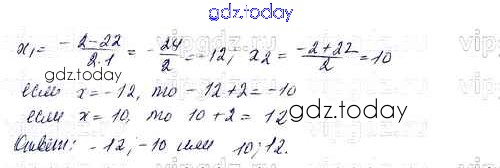 gdz.today
x₁ = -2-22/2·1 = -24/2 = -12; x2 = -2+22/2 = 10
gdz.today
если x = -12, то -12+2 = -10
если x = 10, то 10+2 = 12
gdz.today
Ответ: -12; -10 или 10; 12.